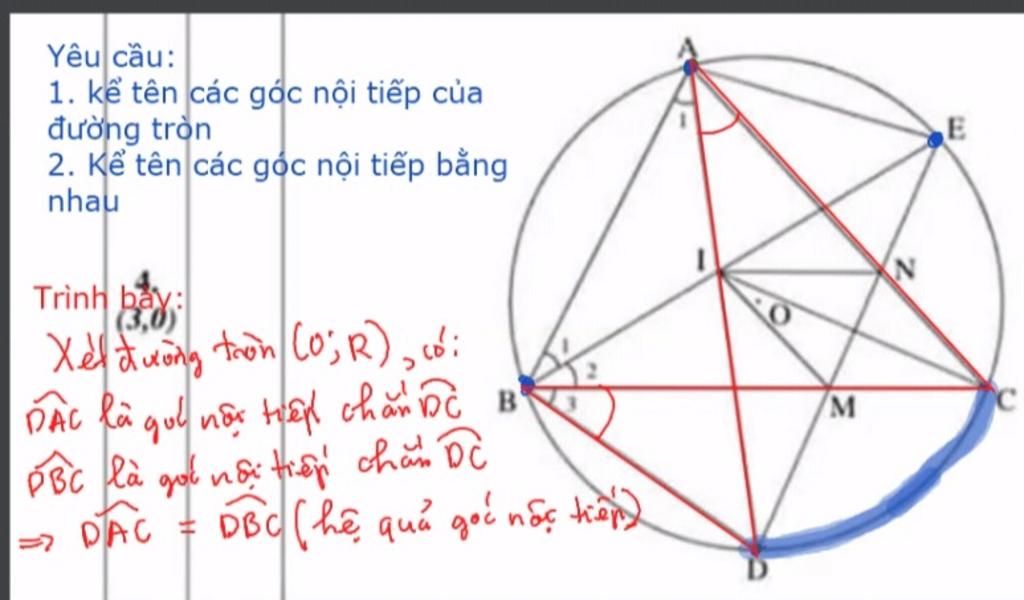 Yêu cầu:
1. kể tên các góc nội tiếp của
đường tròn
2. Kể tên các góc nội tiếp bằng
nhau
4.
(3,0)
Trình bày:
Xét đường tròn (O; R), có:
DAC là góc nội tiếp chắn DC
DBC là góc nội tiếp chắn DC
=> DAC = DBC (hệ quả góc nội tiếp)
A
E
1
I
N
O
1
2
3
B
M
C
D